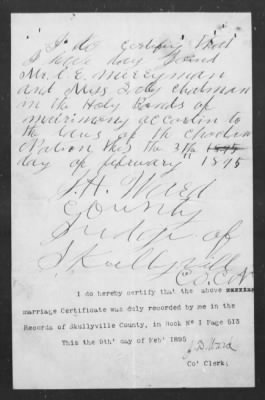 I do certify that
I have day Joind
Mr. C E. Merryman
and Miss Doby Chatman
in the Holy Bonds of
matrimony accordin to
the laws of the Choctaw
Nation this the 3th 1895
day of february 1895
J. H. Ward
County
Judge of
Skullyville
Co. C. N.
I do hereby certify that the above
marriage Certificate was duly recorded by me in the
Records of Skullyville County, in Book No I Page 513
This the 9th' day of Feb' 1895
Ward
Co' Clerk;